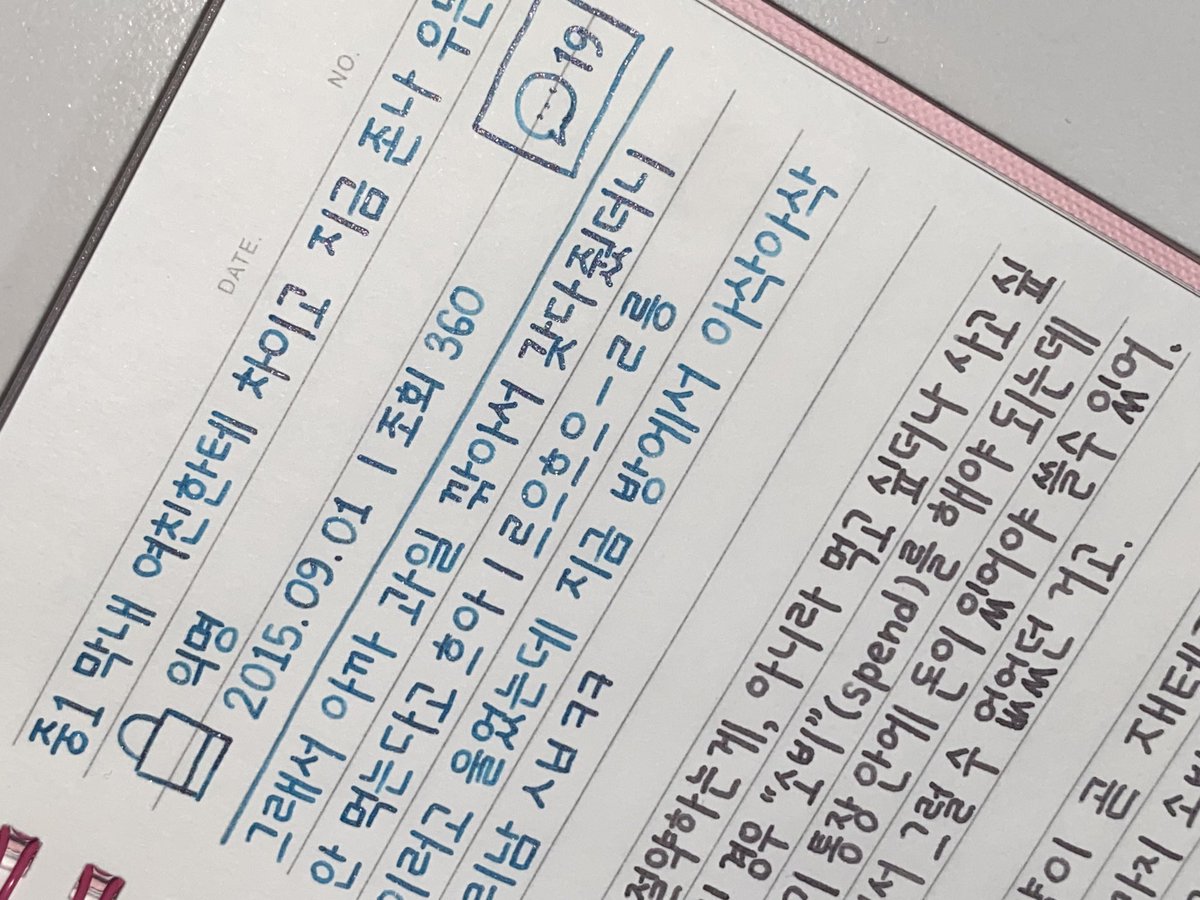 NO.
DATE.
중1 막내 여친한테 차이고 지금 존나 우는
익명
19
2015.09.01 | 조회 360
그래서 아까 과일 깎아서 갖다줬더니
안 먹는다고 흐아ㅣ르은흐으ㅡㄹ릉
이러고 울었는데 지금 방에서 아삭아삭
ㅅㅂ ㅋㅋ
절약하는게, 아니라 먹고 싶더나 사고 싶
경우 "소비"(spend)를 해야 되는데
통장 안에 돈이 있어야 쓸수 있어.
그럴 수 없었던 거고.
곧 재테